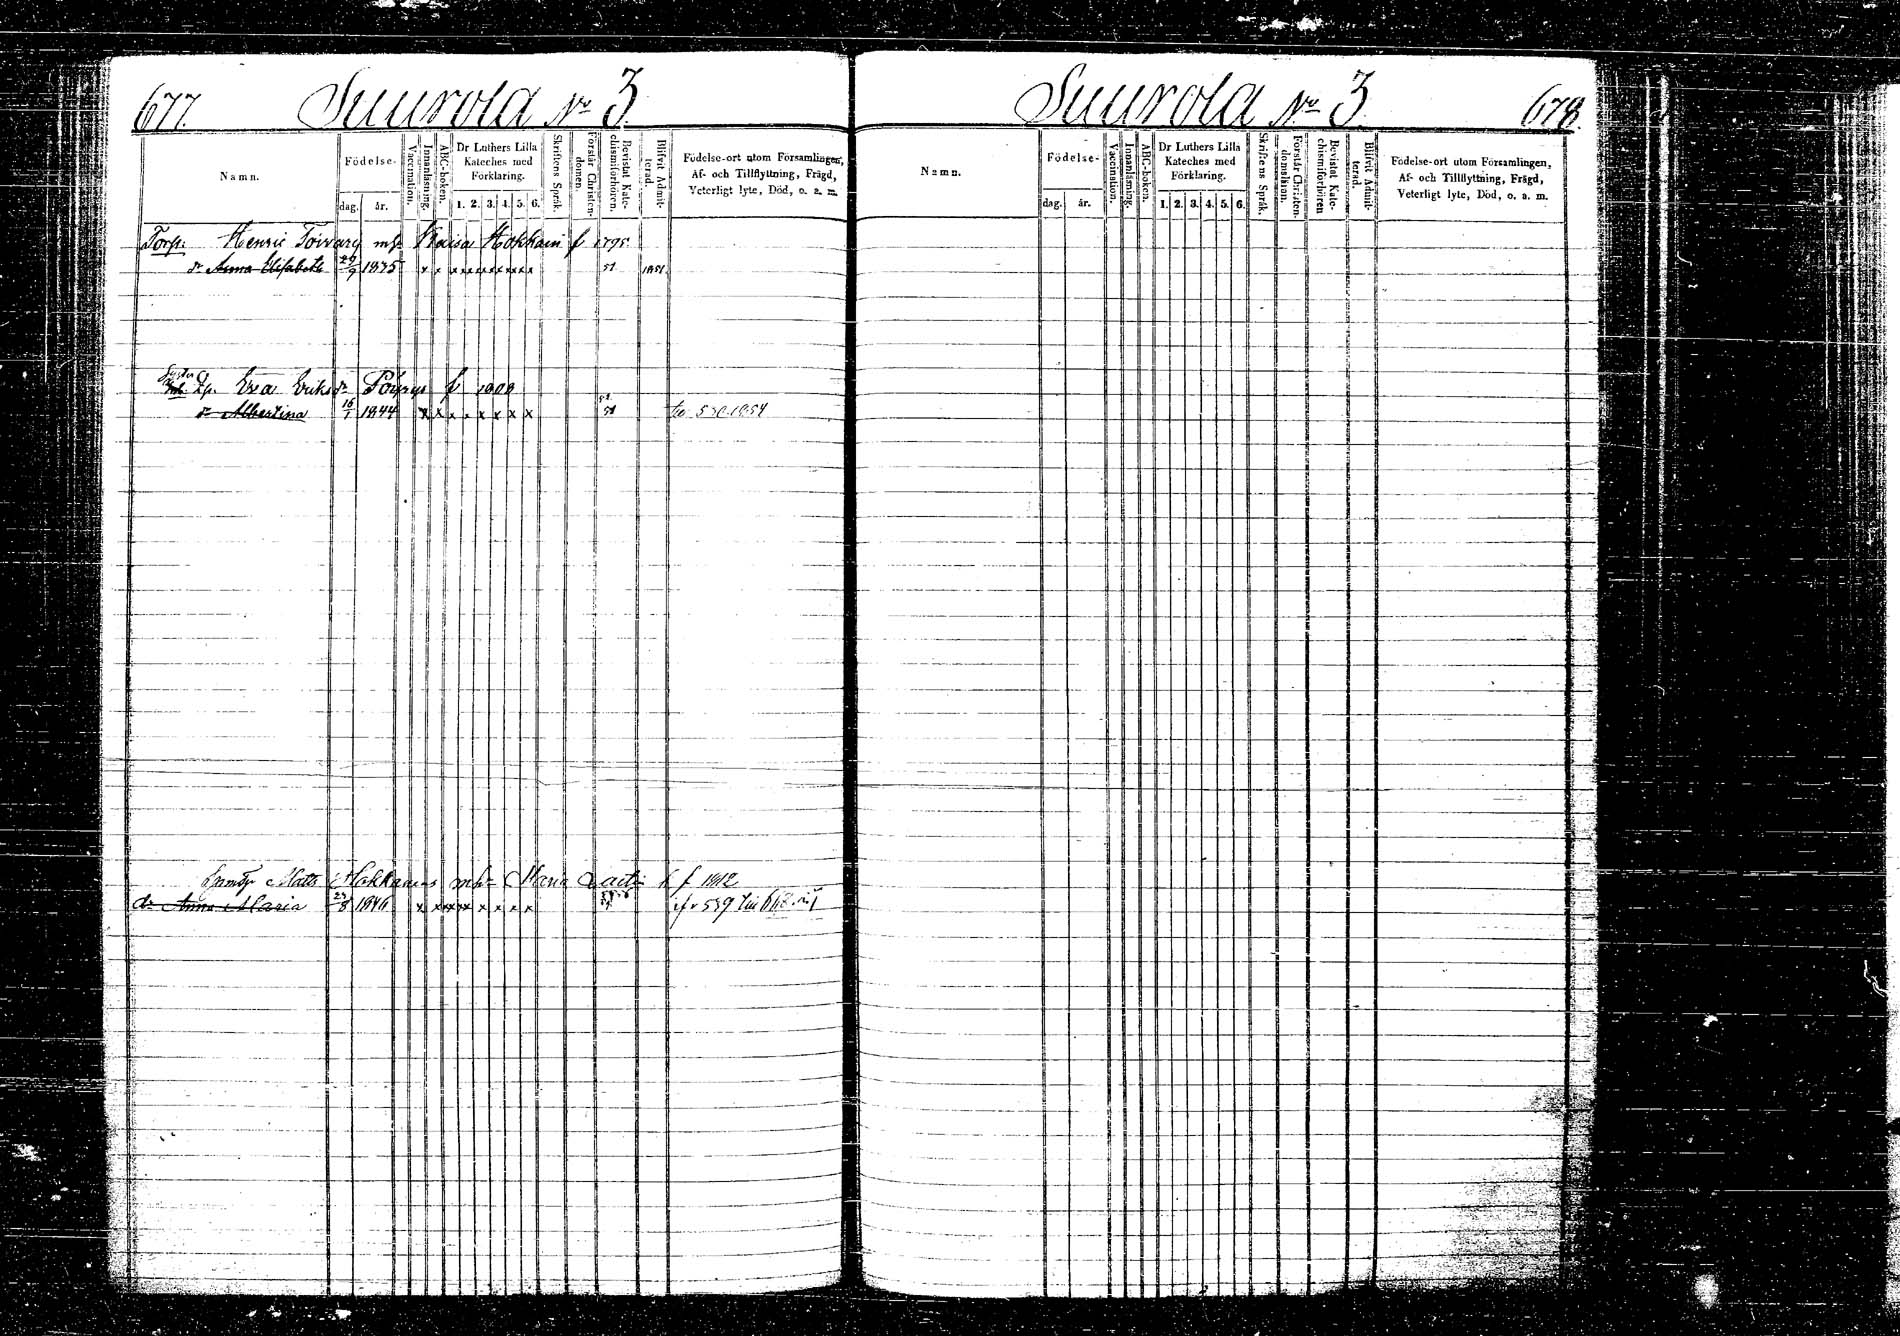 677. Suurola No 3
Namn.
Födelse-
dag.
år.
Vaccination.
Innanläsning.
ABC-boken.
Dr Luthers Lilla
Kateches med
Förklaring.
1. 2. 3. 4. 5. 6.
Skriftens Språk.
Förstår Christen-
domen.
Bevistat Kate-
chismiförhören.
Blifvit Admit-
terad.
Födelse-ort utom Församlingen,
Af- och Tillflyttning, Frägd,
Veterligt lyte, Död, o. a. m.
Torp: Henric Toivary Kaisa Hokkain f 1795
dr Anna Elisabeth 1835 x x x x x x x x x x 51 1851
Eva Eriksdr f 1808
dr Albertina 16/1 1844 x x x x x x x x 51 1854
Matts Hokkanens Maria f 1812
dr Anna Maria 1846 x x x x x x x x x 539
Suurola No 3 678.
Namn.
Födelse-
dag.
år.
Vaccination.
Innanläsning.
ABC-boken.
Dr Luthers Lilla
Kateches med
Förklaring.
1. 2. 3. 4. 5. 6.
Skriftens Språk.
Förstår Christen-
domsläran.
Bevistat Kate-
chismiförhören
Blifvit Admit-
terad.
Födelse-ort utom Församlingen,
Af- och Tillflyttning, Frägd,
Veterligt lyte, Död, o. a. m.